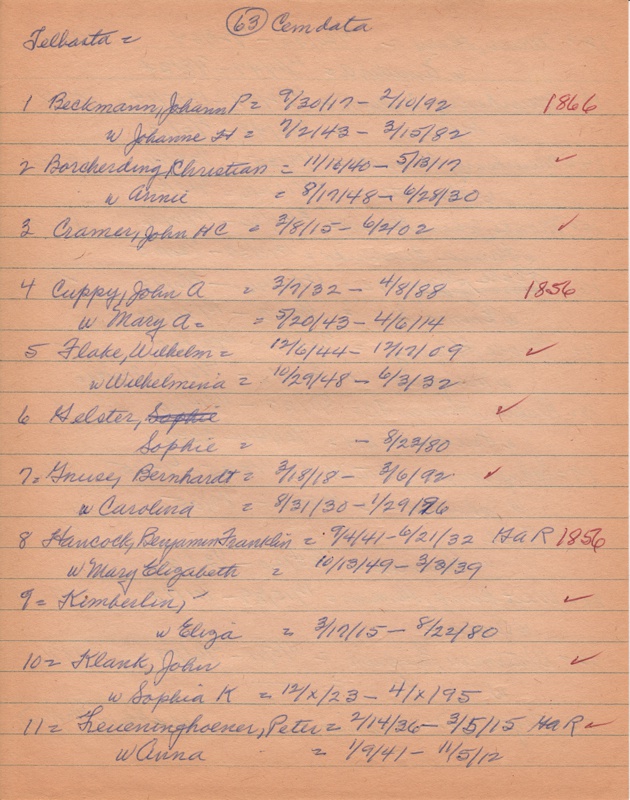 63 Cemdata
Telbasta =
1 Beckmann, Johann P = 9/30/17 - 2/10/92 1866
w Johanne H = 7/2/43 - 3/15/82
2 Borcherding, Khristian = 11/16/40 - 5/13/17 ✓
w Annie = 8/17/48 - 6/28/30
3 Cramer, John HC = 3/8/15 - 6/2/02 ✓
4 Cuppy, John A = 3/7/32 - 4/8/88 1856
w Mary A = = 5/20/43 - 4/6/14
5 Flake, Wilhelm = 12/6/44 - 12/17/09 ✓
w Wilhelmena = 10/29/48 - 6/3/32
6 Gelster, Sophie ✓
Sophie = - 8/23/80
7 = Gnuse, Bernhardt = 3/18/18 - 3/6/92 ✓
w Carolina = 8/31/30 - 1/29/26
8 Hancock, Benjamin Franklin = 9/4/41 - 6/21/32 GaR 1856
w Mary Elizabeth = 10/13/49 - 3/3/39
9 = Kimberlin, ✓
w Eliza = 3/17/15 - 8/22/80
10 = Klank, John ✓
w Sophia K = 12/x/23 - 4/x/95
11 = Leveninghoener, Peter = 2/14/36 - 3/5/15 GaR ✓
w Anna = 1/9/41 - 11/5/12